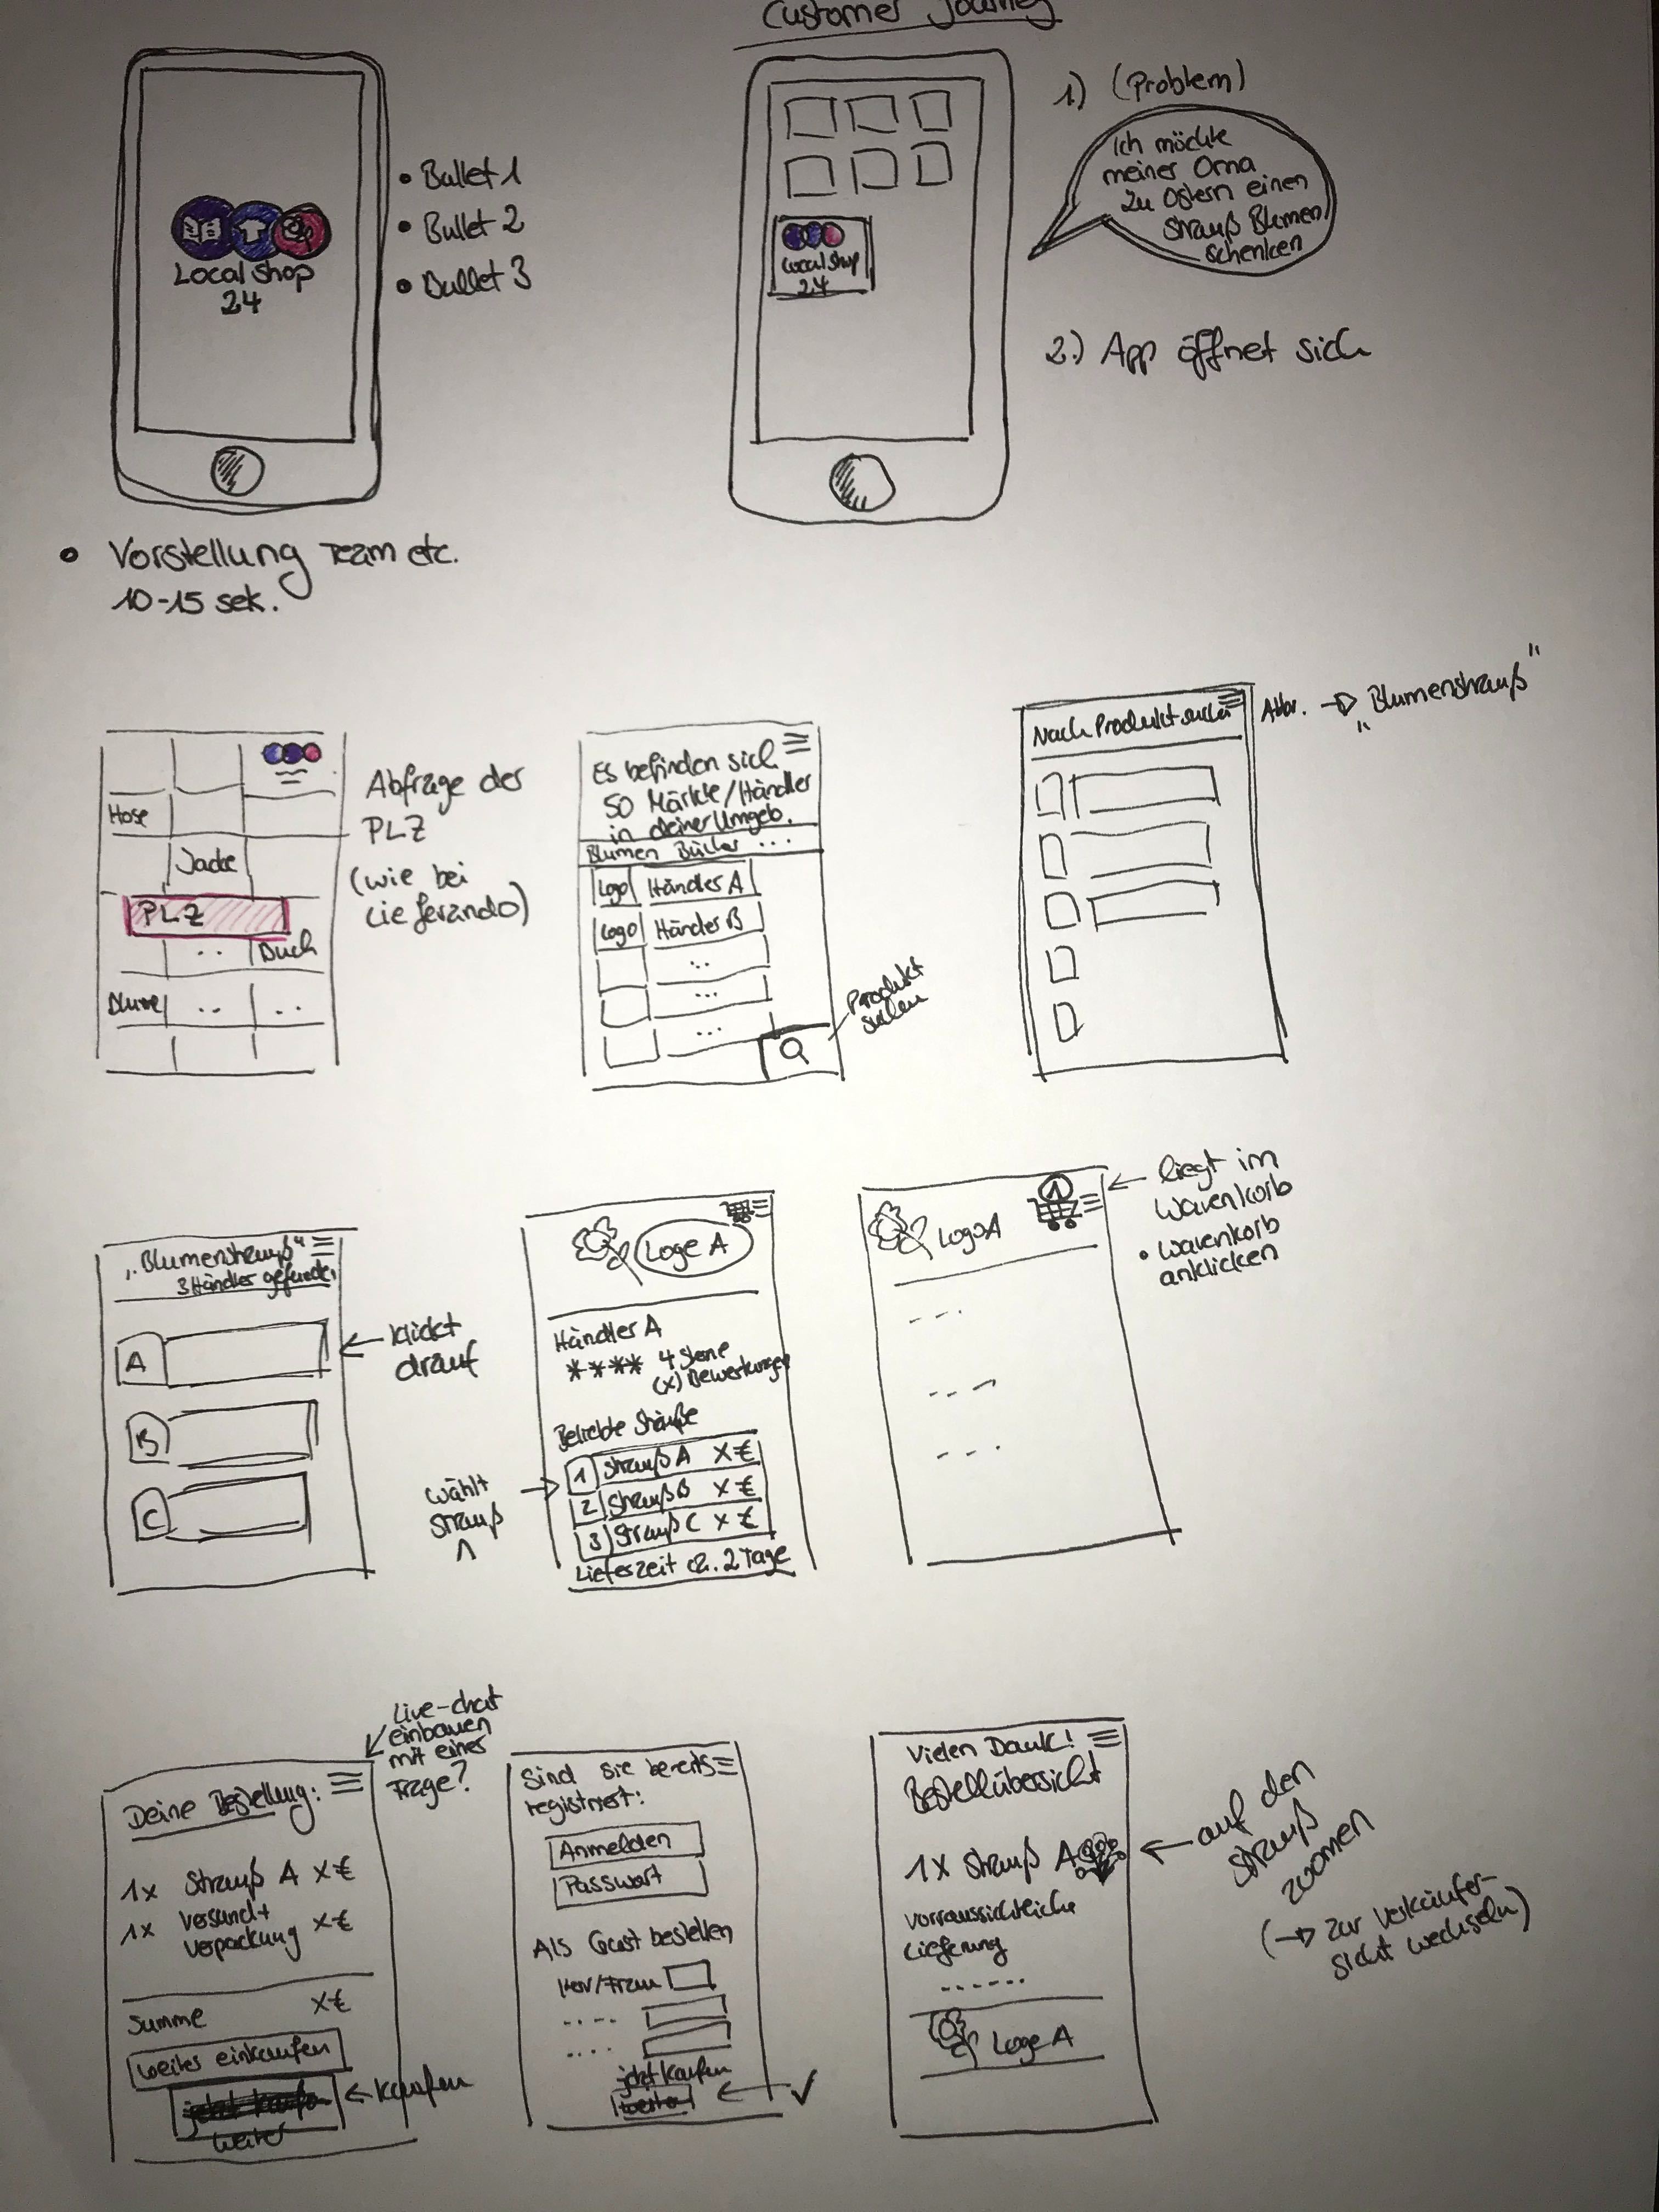 Customer Journey
Local Shop
24
• Bullet 1
• Bullet 2
• Bullet 3
• Vorstellung Team etc.
10-15 sek.
Local Shop
24
1) (Problem)
Ich möchte
meiner Oma
zu Ostern einen
Strauß Blumen
schenken
2.) App öffnet sich
Hose
Jacke
PLZ
.. Buch
Blume .. ..
Abfrage der
PLZ
(wie bei
Lieferando)
Es befinden sich
50 Märkte/Händler
in deiner Umgeb.
Blumen Bücher ...
Logo Händler A
Logo Händler B
...
...
...
Produkt
suchen
Nach Produkt suchen
→ "Blumenstrauß"
„Blumenstrauß"
3 Händler gefunden
A
B
C
← klickt
drauf
Loge A
Händler A
**** 4 Sterne
(x) Bewertungen
Beliebte Sträuße
1 Strauß A X€
2 Strauß B X€
3 Strauß C X€
Lieferzeit ca. 2 Tage
wählt
Strauß
Logo A
1
← liegt im
Warenkorb
• Warenkorb
anklicken
Live-chat
einbauen
mit einer
Frage?
Deine Bestellung:
1x Strauß A X€
1x Versand+
Verpackung X€
Summe X€
weiter einkaufen
jetzt kaufen
weiter
← kaufen
Sind sie bereits
registriert:
Anmelden
Passwort
Als Gast bestellen
Herr/Frau
....
....
jetzt kaufen
weiter
Vielen Dank!
Bestellübersicht
1x Strauß A
vorraussichtliche
Lieferung
......
Loge A
← auf den
Strauß
zoomen
(→ zur Verkäufer-
sicht wechseln)